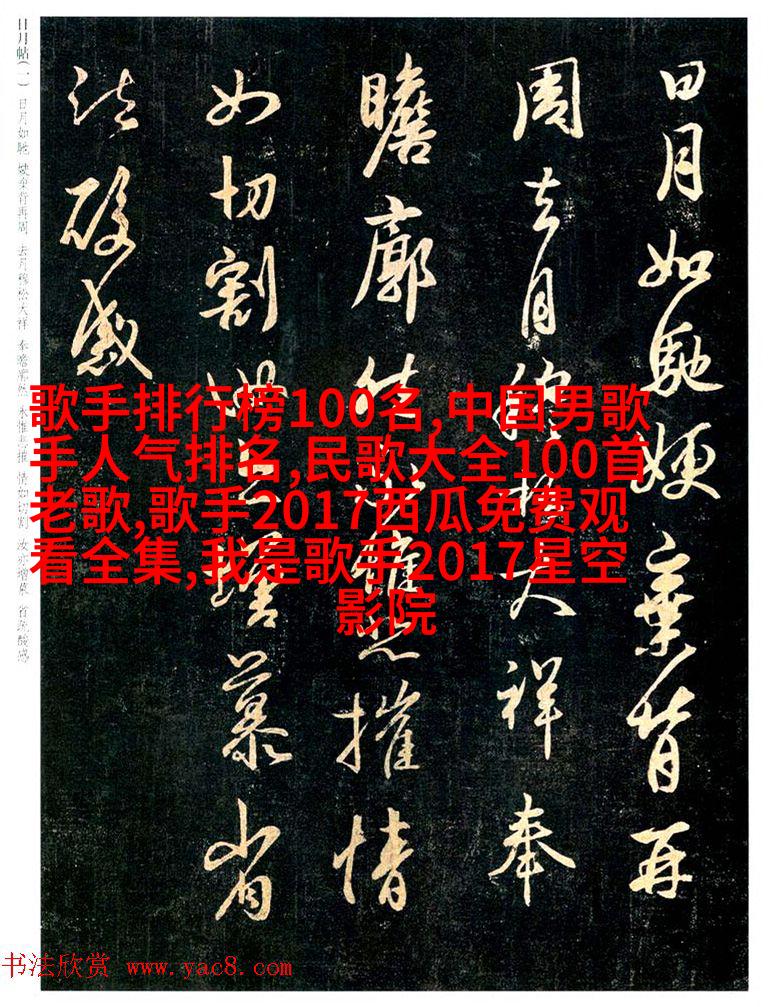 日月如馳嫂棄背再
周去月穆松大祥奉
瞻廓然永惟悲摧情
如切割汝亦增慕省
疏酸感
日月帖(一) 日月如馳 嫂棄背再周 去月穆松大祥 奉瞻廓然 永惟悲摧 情如切割 汝亦增慕 省疏酸感
歌手排行榜100名,中国男歌
手人气排名,民歌大全100首
老歌,歌手2017西瓜免费观
看全集,我是歌手2017星空
影院
书法欣赏 www.yac8.com